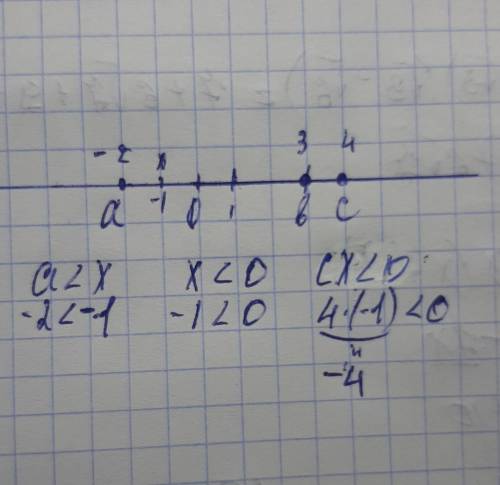 -2 x 3 4
a -1 0 1 b c
a<x x<0 cx<0
-2<-1 -1<0 4·(-1)<0
"
-4